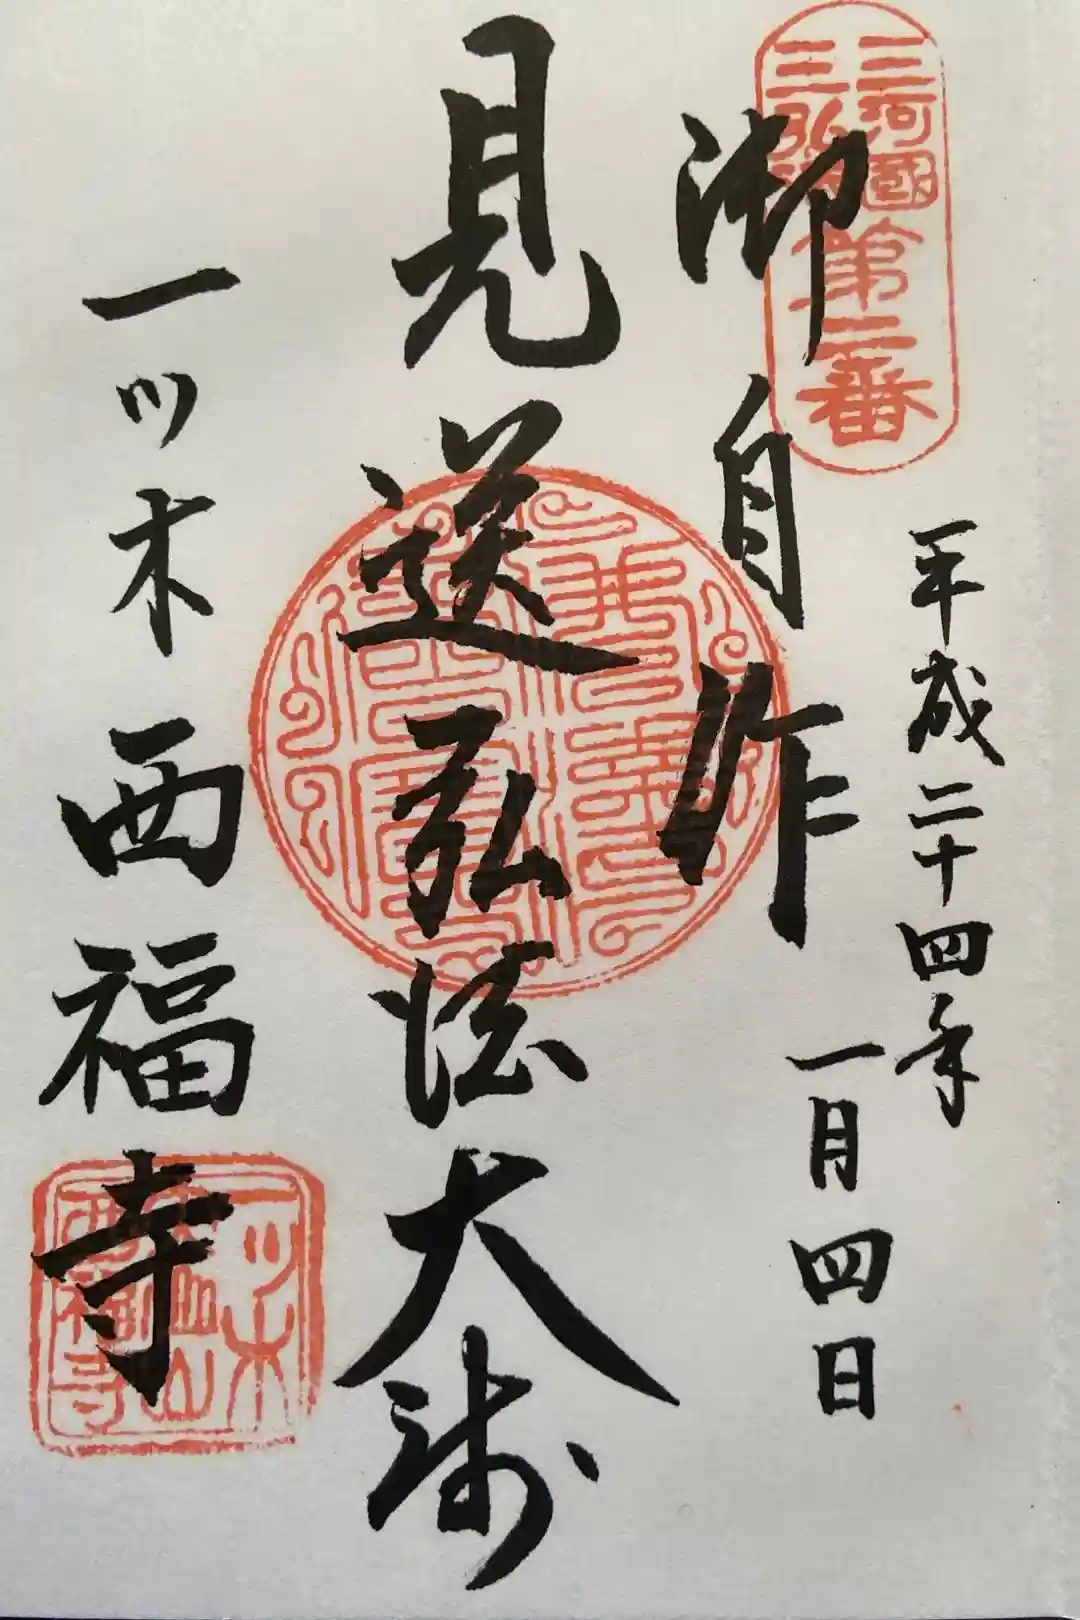 三河國
三弘法
第二番
平成二十四年
一月四日
御自作
見送弘法大師
一ッ木西福寺
一ツ木
西福寺